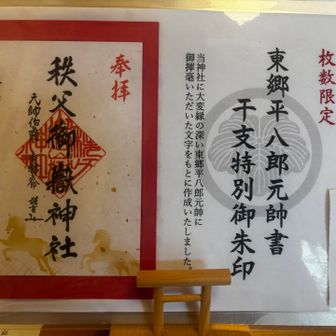 枚数限定
東郷平八郎元帥書
干支特別御朱印
当神社に大変縁の深い東郷平八郎元帥に
御揮毫いただいた文字をもとに作成いたしました。
奉拝
秩父御嶽神社
元帥伯爵